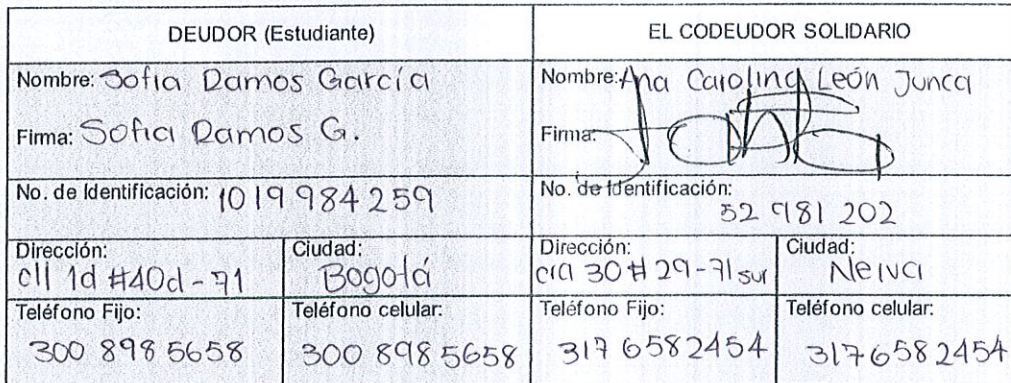 DEUDOR (Estudiante)
EL CODEUDOR SOLIDARIO
Nombre: Sofia Ramos García
Nombre: Ana Carolina León Junca
Firma: Sofia Ramos G.
Firma:
No. de Identificación: 1019 984 259
No. de Identificación:
52 981 202
Dirección:
cll 1d #40d-71
Ciudad:
Bogotá
Dirección:
cra 30 # 29-71 sur
Ciudad:
Neiva
Teléfono Fijo:
300 898 5658
Teléfono celular:
300 898 5658
Teléfono Fijo:
317 6582454
Teléfono celular:
317 658 2454